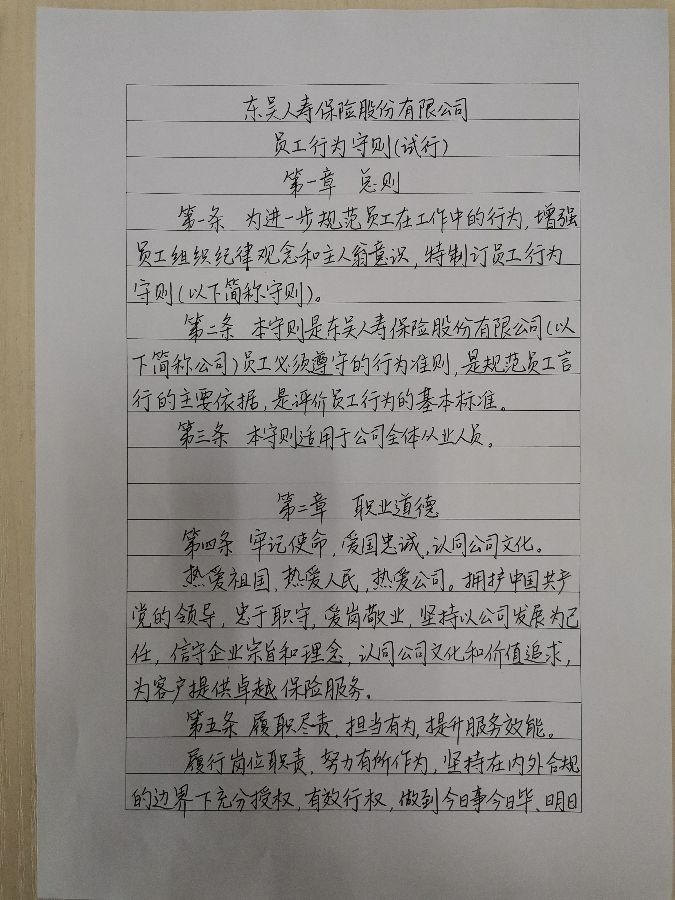 东吴人寿保险股份有限公司
员工行为守则(试行)
第一章 总则
第一条 为进一步规范员工在工作中的行为,增强
员工组织纪律观念和主人翁意识,特制订员工行为
守则(以下简称守则)。
第二条 本守则是东吴人寿保险股份有限公司(以
下简称公司)员工必须遵守的行为准则,是规范员工言
行的主要依据,是评价员工行为的基本标准。
第三条 本守则适用于公司全体从业人员。
第二章 职业道德
第四条 牢记使命,爱国忠诚,认同公司文化。
热爱祖国,热爱人民,热爱公司。拥护中国共产
党的领导,忠于职守,爱岗敬业,坚持以公司发展为己
任,信守企业宗旨和理念,认同公司文化和价值追求,
为客户提供卓越保险服务。
第五条 履职尽责,担当有为,提升服务效能。
履行岗位职责,努力有所作为,坚持在内外合规
的边界下充分授权,有效行权,做到今日事今日毕、明日